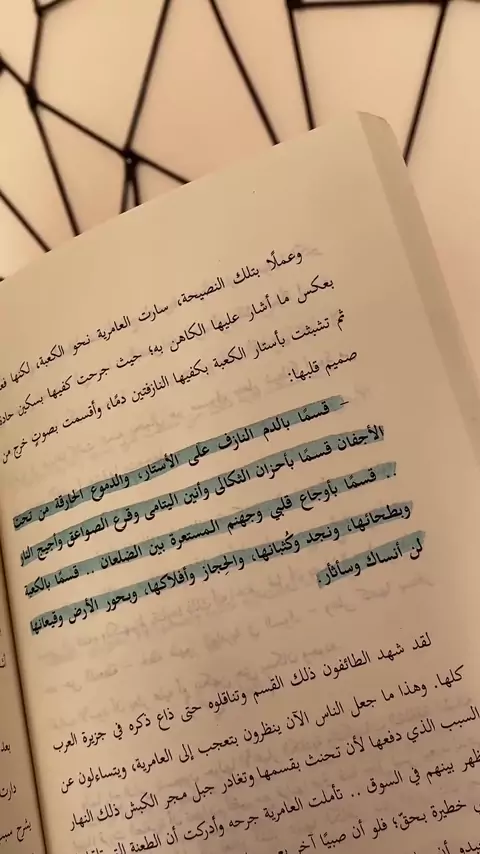 وعملًا بتلك النصيحة، سارت العامرية نحو الكعبة، لكنها
بعكس ما أشار عليها الكاهن به؛ حيث جرحت كفيها بسكين
ثم تشبثت بأستار الكعبة بكفيها النازفتين دمًا، وأقسمت بصوتٍ خرج من
صميم قلبها:
– قسمًا بالدم النازف على الأستار، والدموع الحارقة من تحت
الأجفان قسمًا بأحزان الثكالى وأنين اليتامى وقرع الصواعق وأجيج النار
.. قسمًا بأوجاع قلبي وجهنم المستعرة بين الضلعان .. قسمًا بالكعبة
وبطحائها، ونجد وكُثبانها، والحِجاز وأفلاكها، وبحور الأرض وقيعانها
لن أنساك وسأثأر.
لقد شهد الطائفون ذلك القسم وتناقلوه حتى ذاع ذكره في جزيرة العرب
كلها. وهذا ما جعل الناس الآن ينظرون بتعجب إلى العامرية، ويتساءلون عن
السبب الذي دفعها لأن تحنث بقسمها وتغادر جبل مجر الكبش ذلك النهار
بينهم في السوق .. تأملت العامرية جرحه وأدركت أن الطعنة
خطيرة بحقّ؛ فلو أن صبيًا آخر